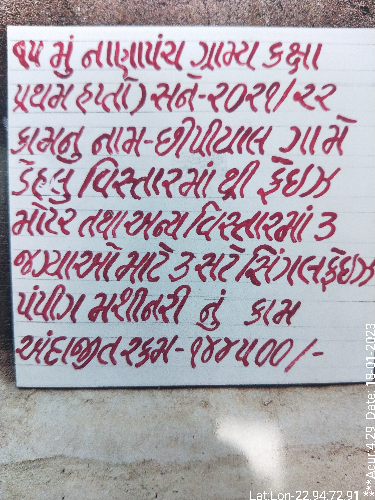 ૧૫ મું નાણાપંચ ગ્રામ્ય કક્ષા
પ્રથમ હપ્તો) સને-૨૦૨૧/૨૨
કામનુ નામ-છીપીયાલ ગામે
ડેહલુ વિસ્તારમાં થ્રી ફેઇઝ
મોટર તથા અન્ય વિસ્તારમાં ૩
જગ્યાઓ માટે ૩ સટે સિંગલફેઇઝ
પંપીગ મશીનરી નું કામ
અંદાજીત રકમ-૧૪૪૫૦૦/-
Lat:Lon-22.94:72.91
***Acur:4.29 Date: 18-01-2023